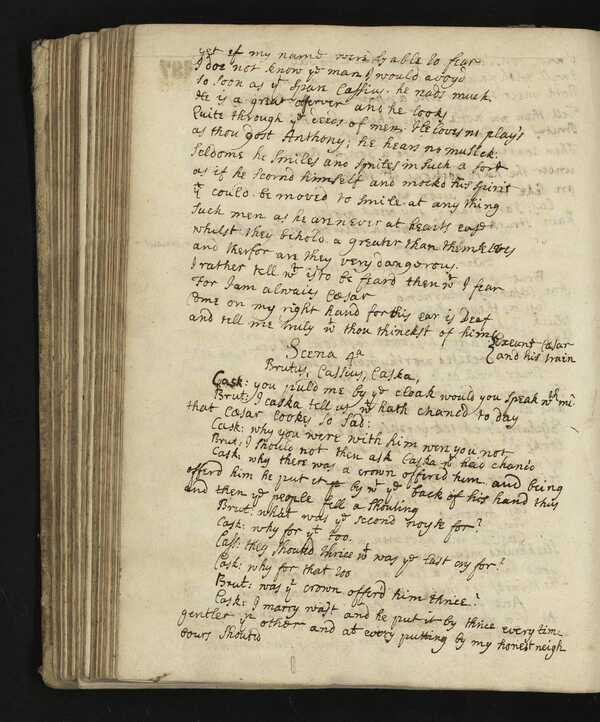 yet if my name were lyable to fear
I doe not know ye man I would avoyd
So soon as ye span Cassius. he reads much
He is a great observer and he looks
Quite through ye deeds of men. He loves no plays
as thou dost Anthony; he hears no musick:
Seldome he smiles and smiles in such a sort
as if he scornd himself and mockd his spirit
yt could be moved to smile at any thing
Such men as he are never at hearts ease
whilst they behold a greater than themselves
and therfor are they very dangerous.
I rather tell wt is to be feard then wt I fear
For I am alwaies Cæsar
Come on my right hand for this ear is Deaf
and tell me truly wt thou thinckst of him
Exeunt Cæsar
and his train
Scena 4a
Brutus, Cassius, Caska,
Cask: you puld me by ye cloak would you speak wth me
Brut: I caska tell us wt hath chancd to day
that Cæsar lookes so sad:
Cask: why you were with him were you not
Brut: I should not then ask Caska wt had chancd
Cask: why there was a crown offered him and being
offerd him he put it by wt ye back of his hand thus
and then ye people fell a shouting
Brut: what was ye second noyse for?
Cask: why for yt too.
Cass: they shouted thrice wt was ye last cry for?
Cask: why for that too
Brut: was ye crown offerd him thrice?
Cask: I marry wast and he put it by thrice every time
gentler yn other and at every putting by my honest neigh
bours shouted